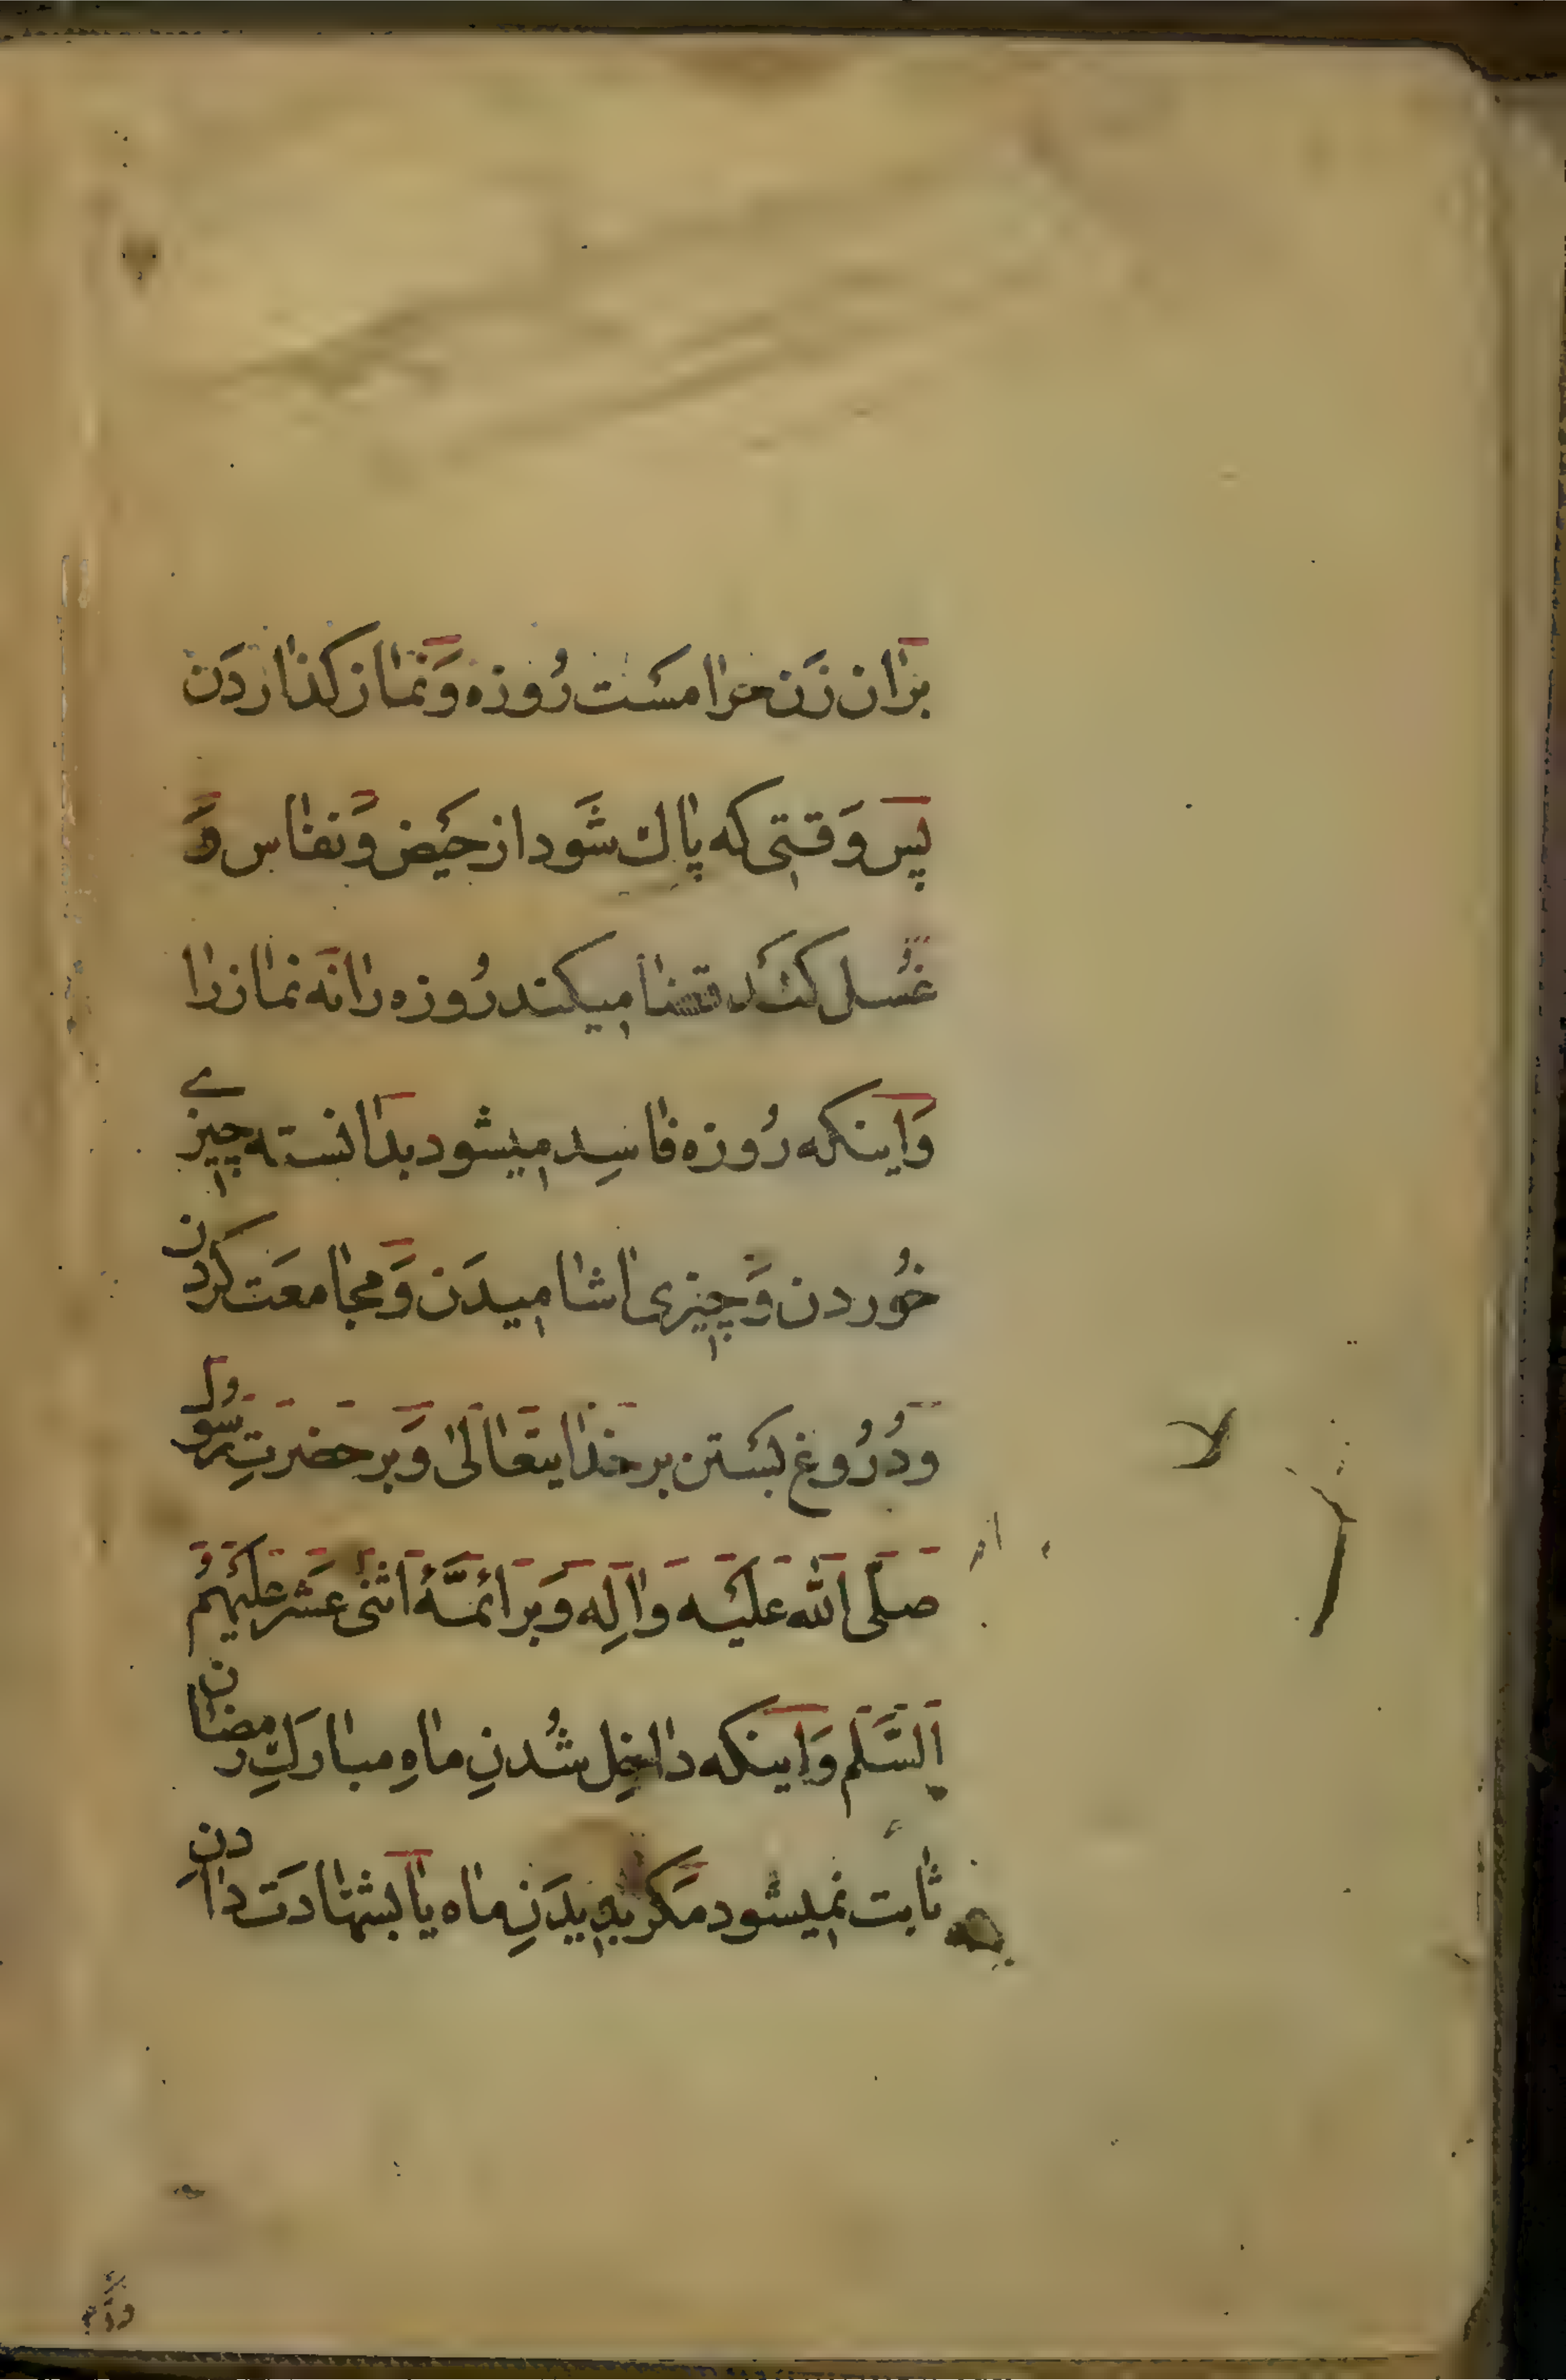 بران زَن حرامسَت رُوزه وَنماز کذاردَن
پس وَقتی که پاک شَود از حَیض وَنفاس وَ
غُسل کنَد قضا میکند رُوزه را نَه نماز را
وَاینکه رُوزه فاسِد میشود بدَانسته چیزے
خُوردن وَچیزی اشامیدَن وَمجامعَت کردن
ودُرُوغ بَستن بر خدایتَعالی وَبر حضرتِ رسُول
صَلّی اللّه عَلَیه وَالِه وَبَر ائمَّۀ اثنی عَشَر عَلَیهِمُ
اَلسَّلَم وَاینکه داخِل شُدنِ ماهِ مبارَکِ رمضان
ثابت نمیشود مَکر بدِیدَنِ ماه یا بشهادَت دادنِ
لا